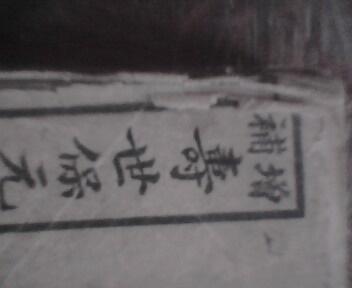 增補壽世保元